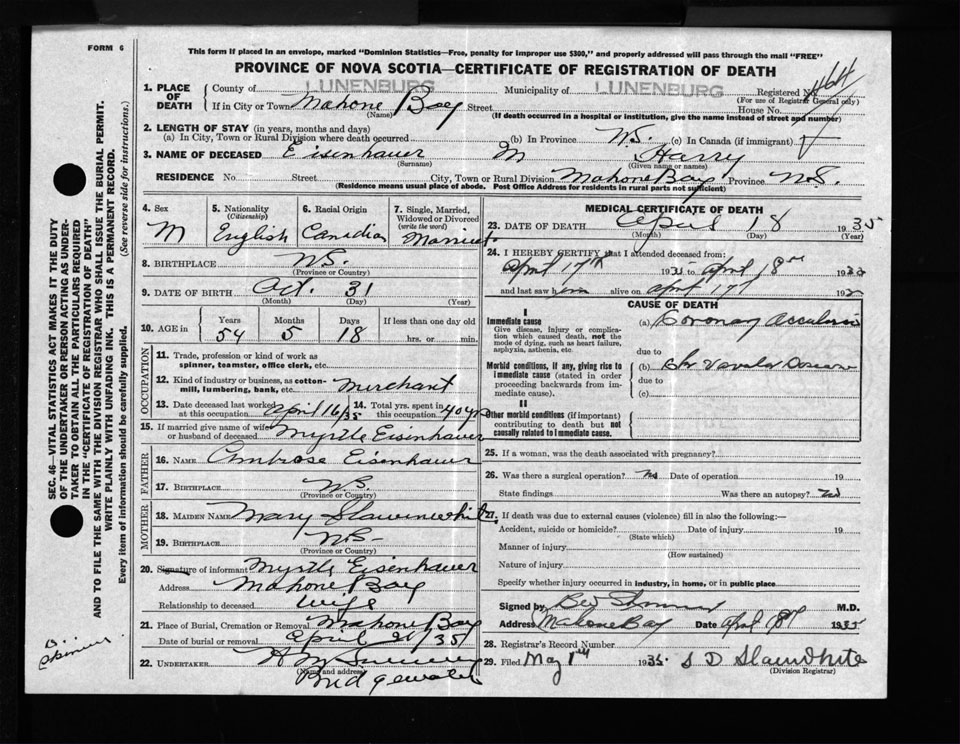 FORM 6
This form if placed in an envelope, marked "Dominion Statistics—Free, penalty for improper use $300," and properly addressed will pass through the mail "FREE"
PROVINCE OF NOVA SCOTIA—CERTIFICATE OF REGISTRATION OF DEATH
1. PLACE OF DEATH
County of LUNENBURG Municipality of LUNENBURG Registered No.
(For use of Registrar General only)
If in City or Town Mahone Bay Street House No.
(Name) (If death occurred in a hospital or institution, give the name instead of street and number)
2. LENGTH OF STAY (in years, months and days)
(a) In City, Town or Rural Division where death occurred (b) In Province N.S. (c) In Canada (if immigrant)
3. NAME OF DECEASED Eisenhauer M Harry
(Surname) (Given name or names)
RESIDENCE No. Street City, Town or Rural Division Mahone Bay Province N.S.
(Residence means usual place of abode. Post Office Address for residents in rural parts not sufficient)
4. Sex M
5. Nationality (Citizenship) English
6. Racial Origin Canadian
7. Single, Married, Widowed or Divorced (write the word) Married
8. BIRTHPLACE N.S.
(Province or Country)
9. DATE OF BIRTH Oct. 31
(Month) (Day) (Year)
10. AGE in Years Months Days If less than one day old
54 5 18 hrs. or min.
OCCUPATION
11. Trade, profession or kind of work as spinner, teamster, office clerk, etc.
12. Kind of industry or business, as cotton-mill, lumbering, bank, etc. Merchant
13. Date deceased last worked at this occupation April 16/35
14. Total yrs. spent in this occupation 40 yrs
15. If married give name of wife or husband of deceased Myrtle Eisenhauer
FATHER
16. NAME Ambrose Eisenhauer
17. BIRTHPLACE N.S.
(Province or Country)
MOTHER
18. MAIDEN NAME Mary Slawenwhite
19. BIRTHPLACE N.S.
(Province or Country)
20. Signature of informant Myrtle Eisenhauer
Address Mahone Bay
Relationship to deceased wife
21. Place of Burial, Cremation or Removal Mahone Bay
Date of burial or removal April 21/35
22. UNDERTAKER
(Name and address)
Bridgewater
MEDICAL CERTIFICATE OF DEATH
23. DATE OF DEATH April 18 1935
(Month) (Day) (Year)
24. I HEREBY CERTIFY that I attended deceased from:
April 17th 1935 to April 18th 1935
and last saw him alive on April 17th 193
CAUSE OF DEATH
I
Immediate cause
Give disease, injury or complication which caused death, not the mode of dying, such as heart failure, asphyxia, asthenia, etc.
(a) Coronary Occlusion
due to
Morbid conditions, if any, giving rise to immediate cause (stated in order proceeding backwards from immediate cause).
(b) Chr Valvular Disease
due to
(c)
II
Other morbid conditions (if important) contributing to death but not causally related to immediate cause.
25. If a woman, was the death associated with pregnancy?
26. Was there a surgical operation? No Date of operation 19
State findings Was there an autopsy? No
27. If death was due to external causes (violence) fill in also the following:—
Accident, suicide or homicide? Date of injury 19
(State which)
Manner of injury
(How sustained)
Nature of injury
Specify whether injury occurred in industry, in home, or in public place
Signed by M.D.
Address Mahone Bay Date April 18th 1935
28. Registrar's Record Number
29. Filed May 1st 1935 S D Slawnwhite
(Division Registrar)
SEC. 46—VITAL STATISTICS ACT MAKES IT THE DUTY OF THE UNDERTAKER OR PERSON ACTING AS UNDERTAKER TO OBTAIN ALL THE PARTICULARS REQUIRED IN THE "CERTIFICATE OF REGISTRATION OF DEATH"
AND TO FILE THE SAME WITH THE DIVISION REGISTRAR WHO SHALL ISSUE THE BURIAL PERMIT.
WRITE PLAINLY WITH UNFADING INK. THIS IS A PERMANENT RECORD.
Every item of information should be carefully supplied. (See reverse side for instructions.)